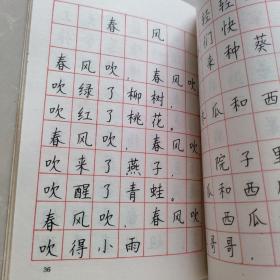 春风
春风吹，春风吹，
吹绿了柳树，
吹红了桃花。
春风吹，春风吹，
吹来了燕子，
吹醒了青蛙。
春风吹，春风吹，
吹得小雨
36
轻轻
们快
来种葵
瓜和西
院子里
瓜和西
西瓜
哥哥，